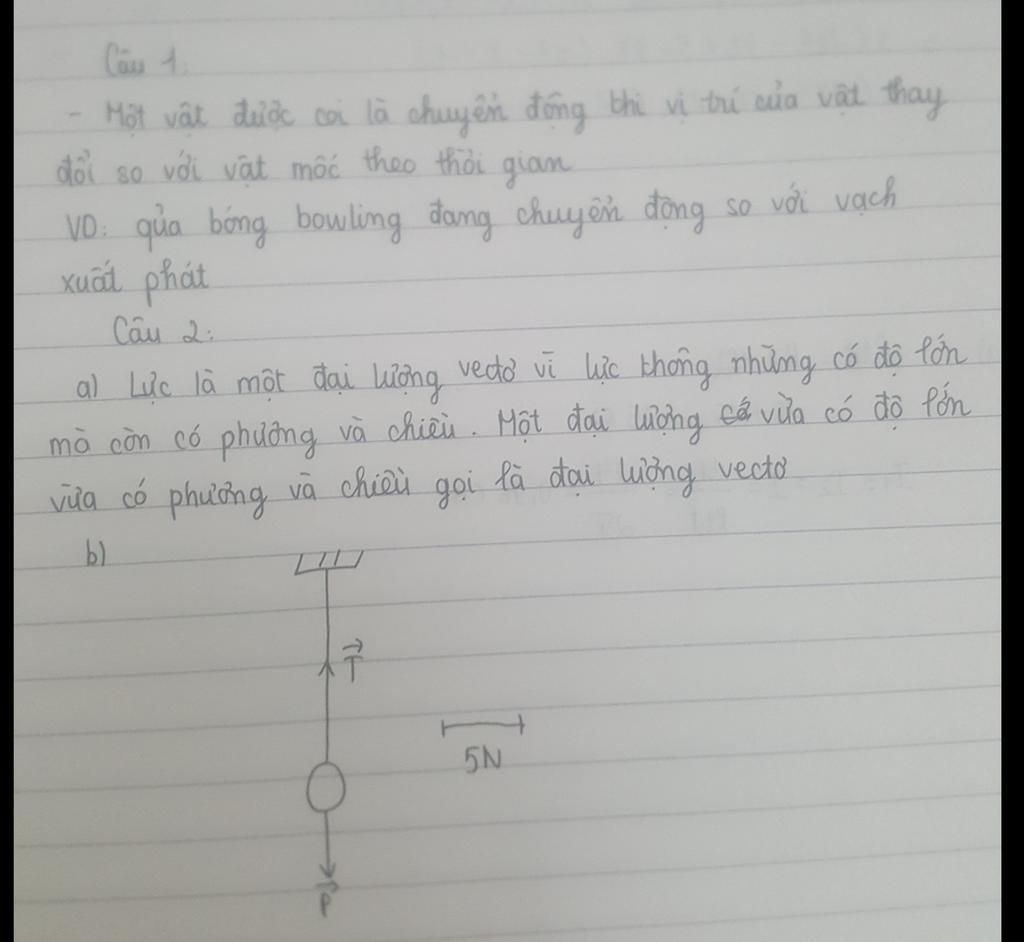 Câu 1:
- Một vật được coi là chuyển động khi vị trí của vật thay
đổi so với vật mốc theo thời gian
VD: qủa bóng bowling đang chuyển động so với vạch
xuất phát
Câu 2:
a) Lực là một đại lượng vectơ vì lực không những có độ lớn
mà còn có phương và chiều. Một đại lượng vừa có độ lớn
vừa có phương và chiều gọi là đại lượng vectơ
b)
T
5N
P